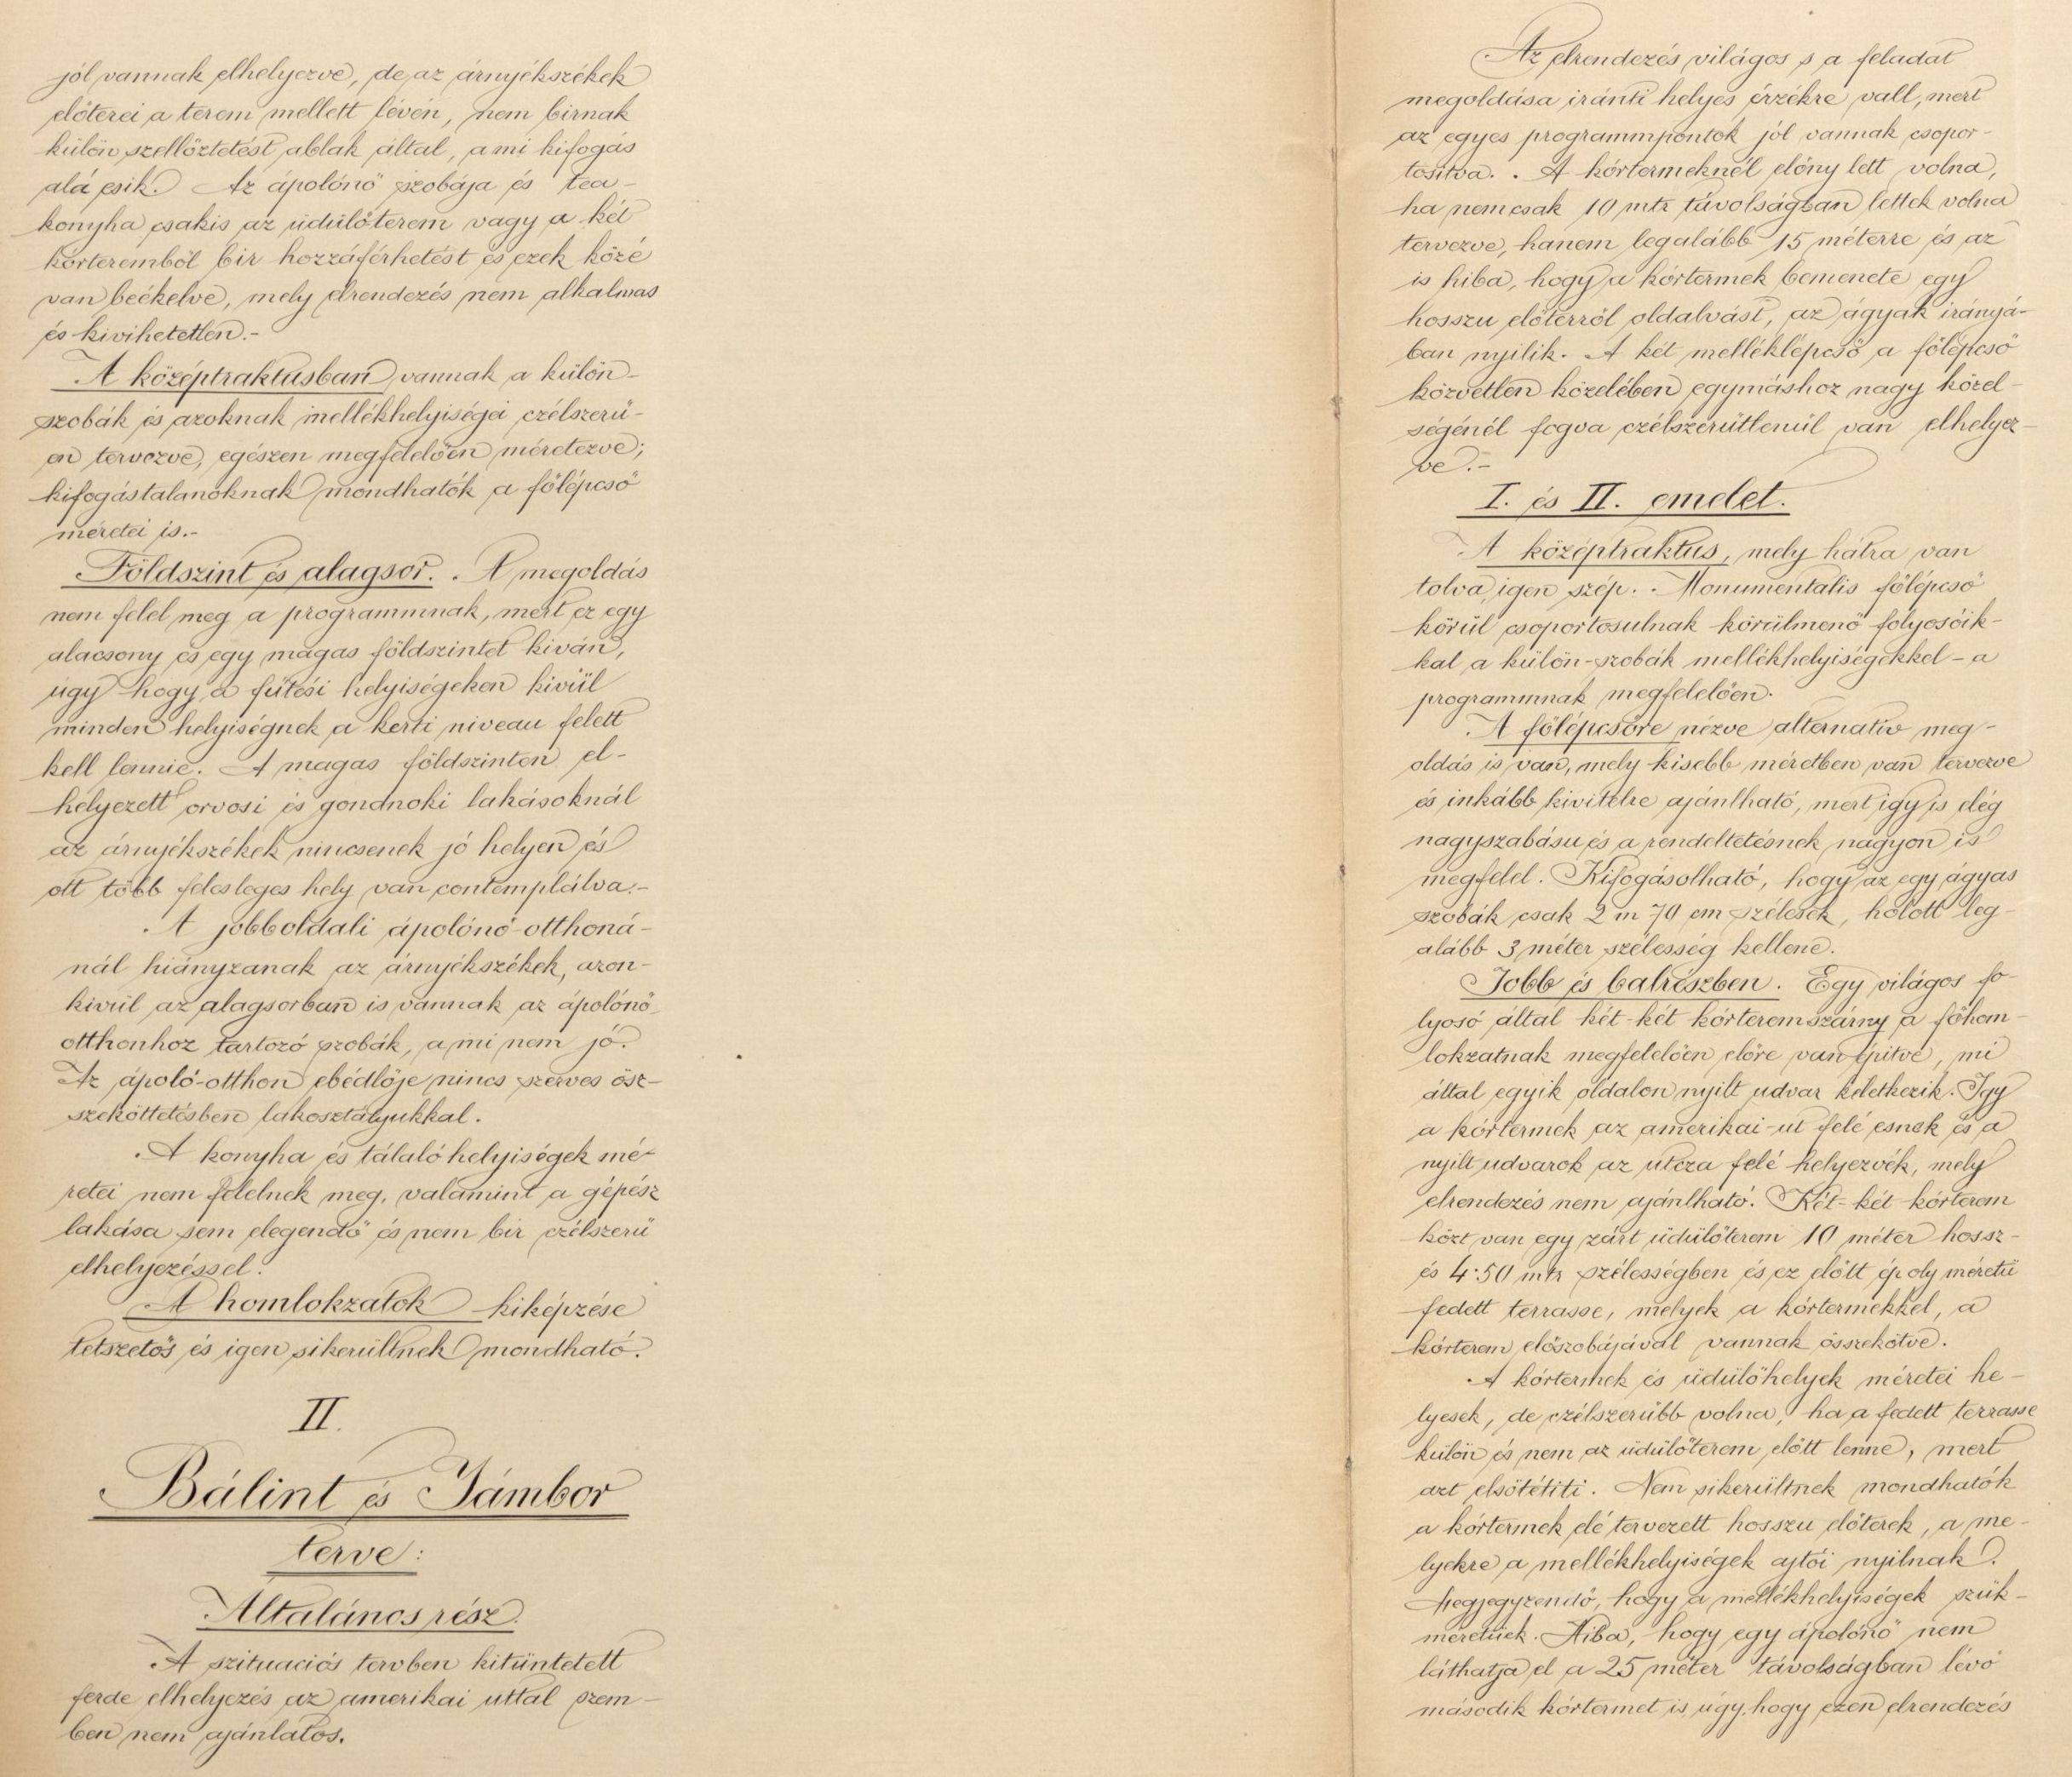 jól vannak elhelyezve, de az árnyékszékek
előterei a terem mellett lévén, nem birnak
külön szellőztetést ablak által, a mi kifogás
alá esik. Az ápolónő szobája és tea-
konyha csakis az üdülőterem vagy a két
kórteremből bir hozzáférhetést és ezek közé
van beékelve, mely elrendezés nem alkalmas
és kivihetetlen.-
A középtraktusban vannak a külön-
szobák és azoknak mellékhelyiségei czélszerü-
en tervezve, egészen megfelelően méretezve;
kifogástalanoknak mondhatók a főlépcső
méretei is.-
Földszint és alagsor. . A megoldás
nem felel meg a programmnak, mert ez egy
alacsony és egy magas földszintet kiván,
úgy hogy a fűtési helyiségeken kivül
minden helyiségnek a kerti niveau felett
kell lennie. A magas földszinten el-
helyezett orvosi és gondnoki lakásoknál
az árnyékszékek nincsenek jó helyen és
ott több felesleges hely van contemplálva.-
A jobboldali ápolónő-otthoná-
nál hiányzanak az árnyékszékek, azon-
kivül az alagsorban is vannak az ápolónő-
otthonhoz tartozó szobák, a mi nem jó.
Az ápoló-otthon ebédlője nincs szerves ösz-
szeköttetésben lakosztályukkal.
A konyha és tálaló helyiségek mé-
retei nem felelnek meg, valamint a gépész
lakása sem elegendő és nem bir czélszerü
elhelyezéssel.
A homlokzatok kiképzése
tetszetős és igen sikerültnek mondható.
II.
Bálint és Jámbor
terve:
Általános rész.
A szituációs tervben kitüntetett
ferde elhelyezés az amerikai uttal szem-
ben nem ajánlatos.
Az elrendezés világos s a feladat
megoldása iránti helyes érzékre vall, mert
az egyes programmpontok jól vannak csopor-
tosítva. . A kórtermeknél előny lett volna,
ha nemcsak 10 mtr távolságban lettek volna
tervezve, hanem legalább 15 méterre és az
is hiba, hogy a kórtermek bemenete egy
hosszu előterről oldalvást, az ágyak irányá-
ban nyilik. A két melléklépcső a főlépcső
közvetlen közelében egymáshoz nagy közel-
ségénél fogva czélszerütlenül van elhelyez-
ve.-
I. és II. emelet.
A középtraktus, mely hátra van
tolva, igen szép. . Monumentalis főlépcső
körül csoportosulnak körülmenő folyosóik-
kal a külön-szobák mellékhelyiségekkel - a
programmnak megfelelően.
A főlépcsőre nézve alternativ meg-
oldás is van, mely kisebb méretben van tervezve
és inkább kivitelre ajánlható, mert igy is elég
nagyszabásu és a rendeltetésnek nagyon is
megfelel. Kifogásolható, hogy az egy ágyas
szobák csak 2 m 70 cm szélesek, holott leg-
alább 3 méter szélesség kellene.
Jobb és balrészben. Egy világos fo-
lyosó által két-két kórteremszárny a főhom-
lokzatnak megfelelően előre van épitve, mi
által egyik oldalon nyilt udvar keletkezik. Igy
a kórtermek az amerikai-ut felé esnek és a
nyilt udvarok az utcza felé helyezvék, mely
elrendezés nem ajánlható. Két-két kórterem
közt van egy zárt üdülőterem 10 méter hossz-
és 4.50 mtr szélességben és ez előtt ép oly méretü
fedett terrasse, melyek a kórtermekkel, a
kórterem előszobájával vannak összekötve.
A kórtermek és üdülőhelyek méretei he-
lyesek, de czélszerübb volna, ha a fedett terrasse
külön és nem az üdülőterem előtt lenne, mert
azt elsötétiti. Nem sikerültnek mondhatók
a kórtermek elé tervezett hosszu előterek, a me-
lyekre a mellékhelyiségek ajtói nyilnak.
Megjegyzendő, hogy a mellékhelyiségek szük-
méretüek. Hiba, hogy egy ápolónő nem
láthatja el a 25 méter távolságban lévő
második kórtermet is, úgy, hogy ezen elrendezés